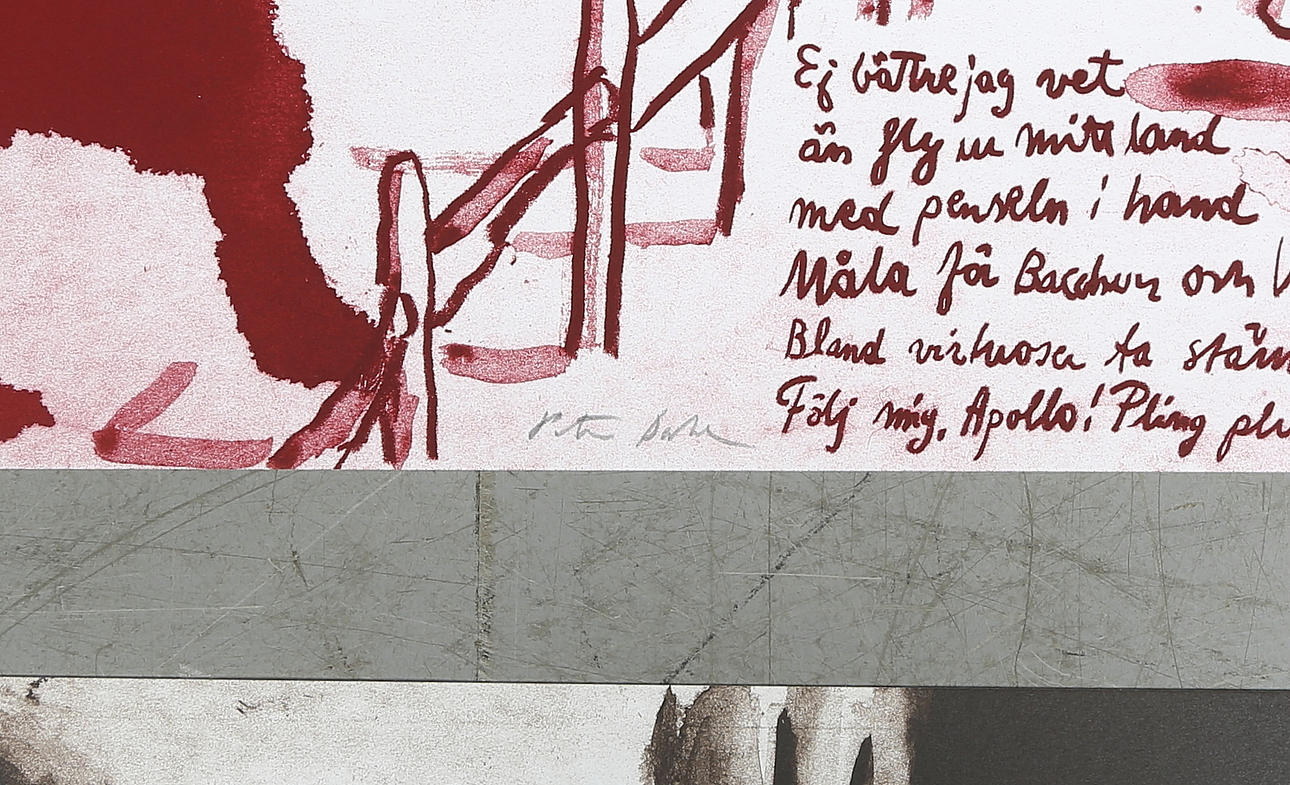 Ej bättre jag vet
än fly ur mitt land
med penseln i hand
Måla för Bacchus och
Bland virtuoser ta
Följ mig, Apollo! Pling
Peter Dahl